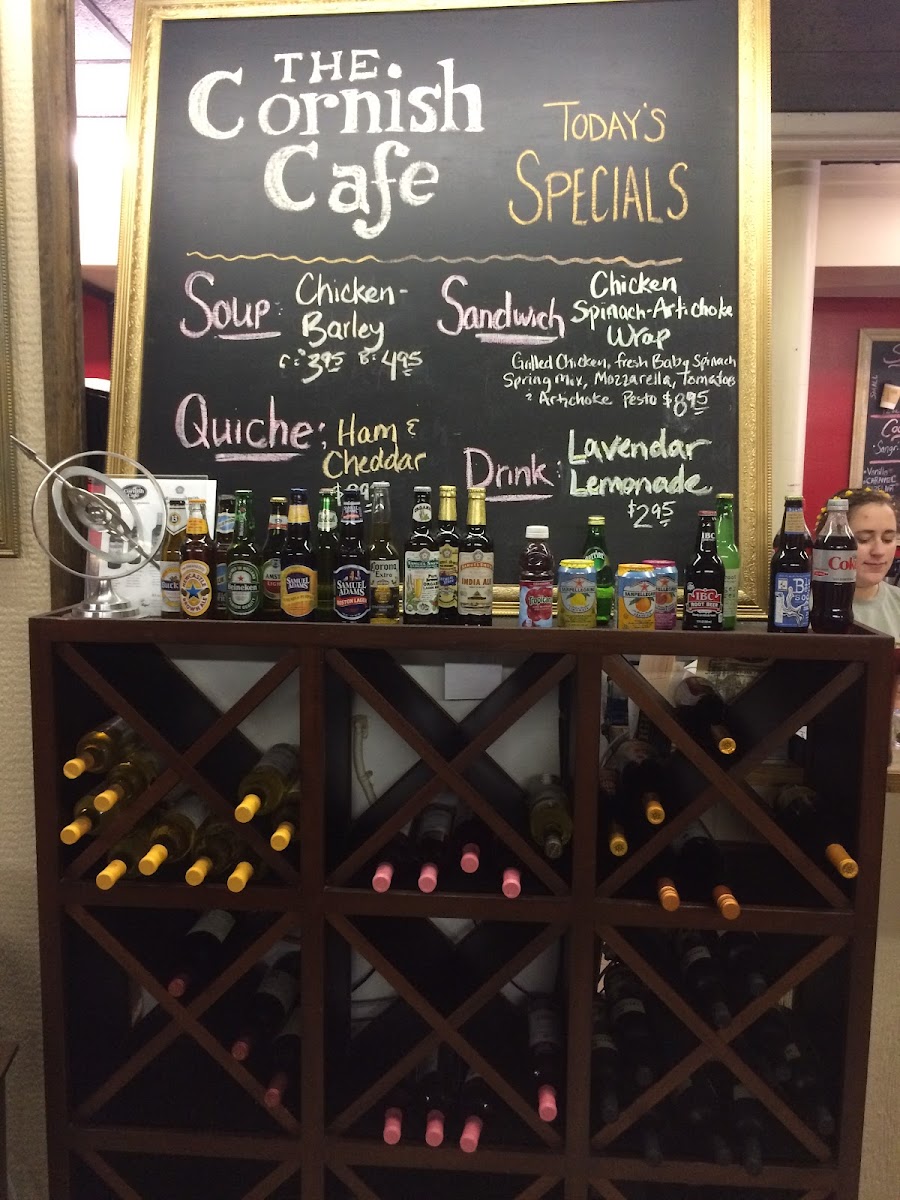 THE
Cornish
Cafe
TODAY'S
SPECIALS
Soup:
Chicken-
Barley
C= 3.95 B= 4.95
Sandwich
Chicken
Spinach-Artichoke
Wrap
Grilled Chicken, fresh Baby Spinach
Spring Mix, Mozzarella, Tomatoes
& Artichoke Pesto $8.95
Quiche:
Ham &
Cheddar
Drink:
Lavendar
Lemonade
$2.95
Heineken
SAMUEL
ADAMS
SAMUEL
ADAMS
BOSTON LAGER
Corona
Extra
INDIA ALE
SANPELLEGRINO
SANPELLEGRINO
IBC
ROOT BEER
Coke